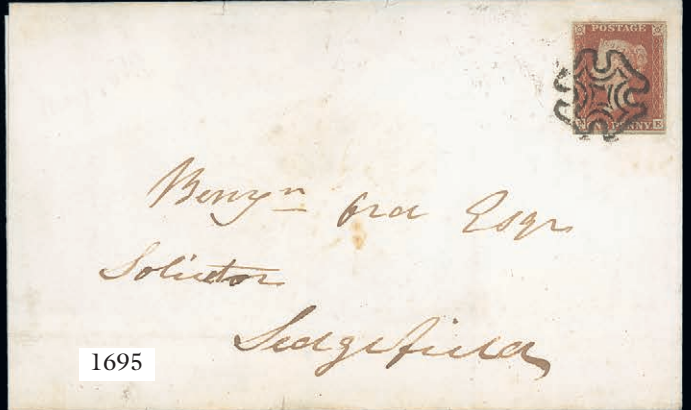 POSTAGE
PENNY
Benjn Ord Esqr
Solicitor
Sedgefield
1695